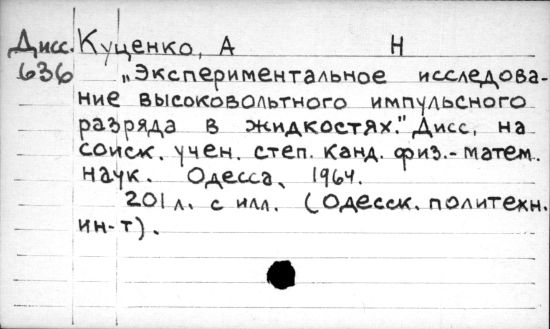 Дисс. Куценко, А Н
636 „Экспериментальное исследова-
ние высоковольтного импульсного
разряда в жидкостях." Дисс, на
соиск. учен. степ. канд. физ.-матем.
наук. Одесса, 1964.
201 л. с илл. (Одесск. политехн.
ин-т).